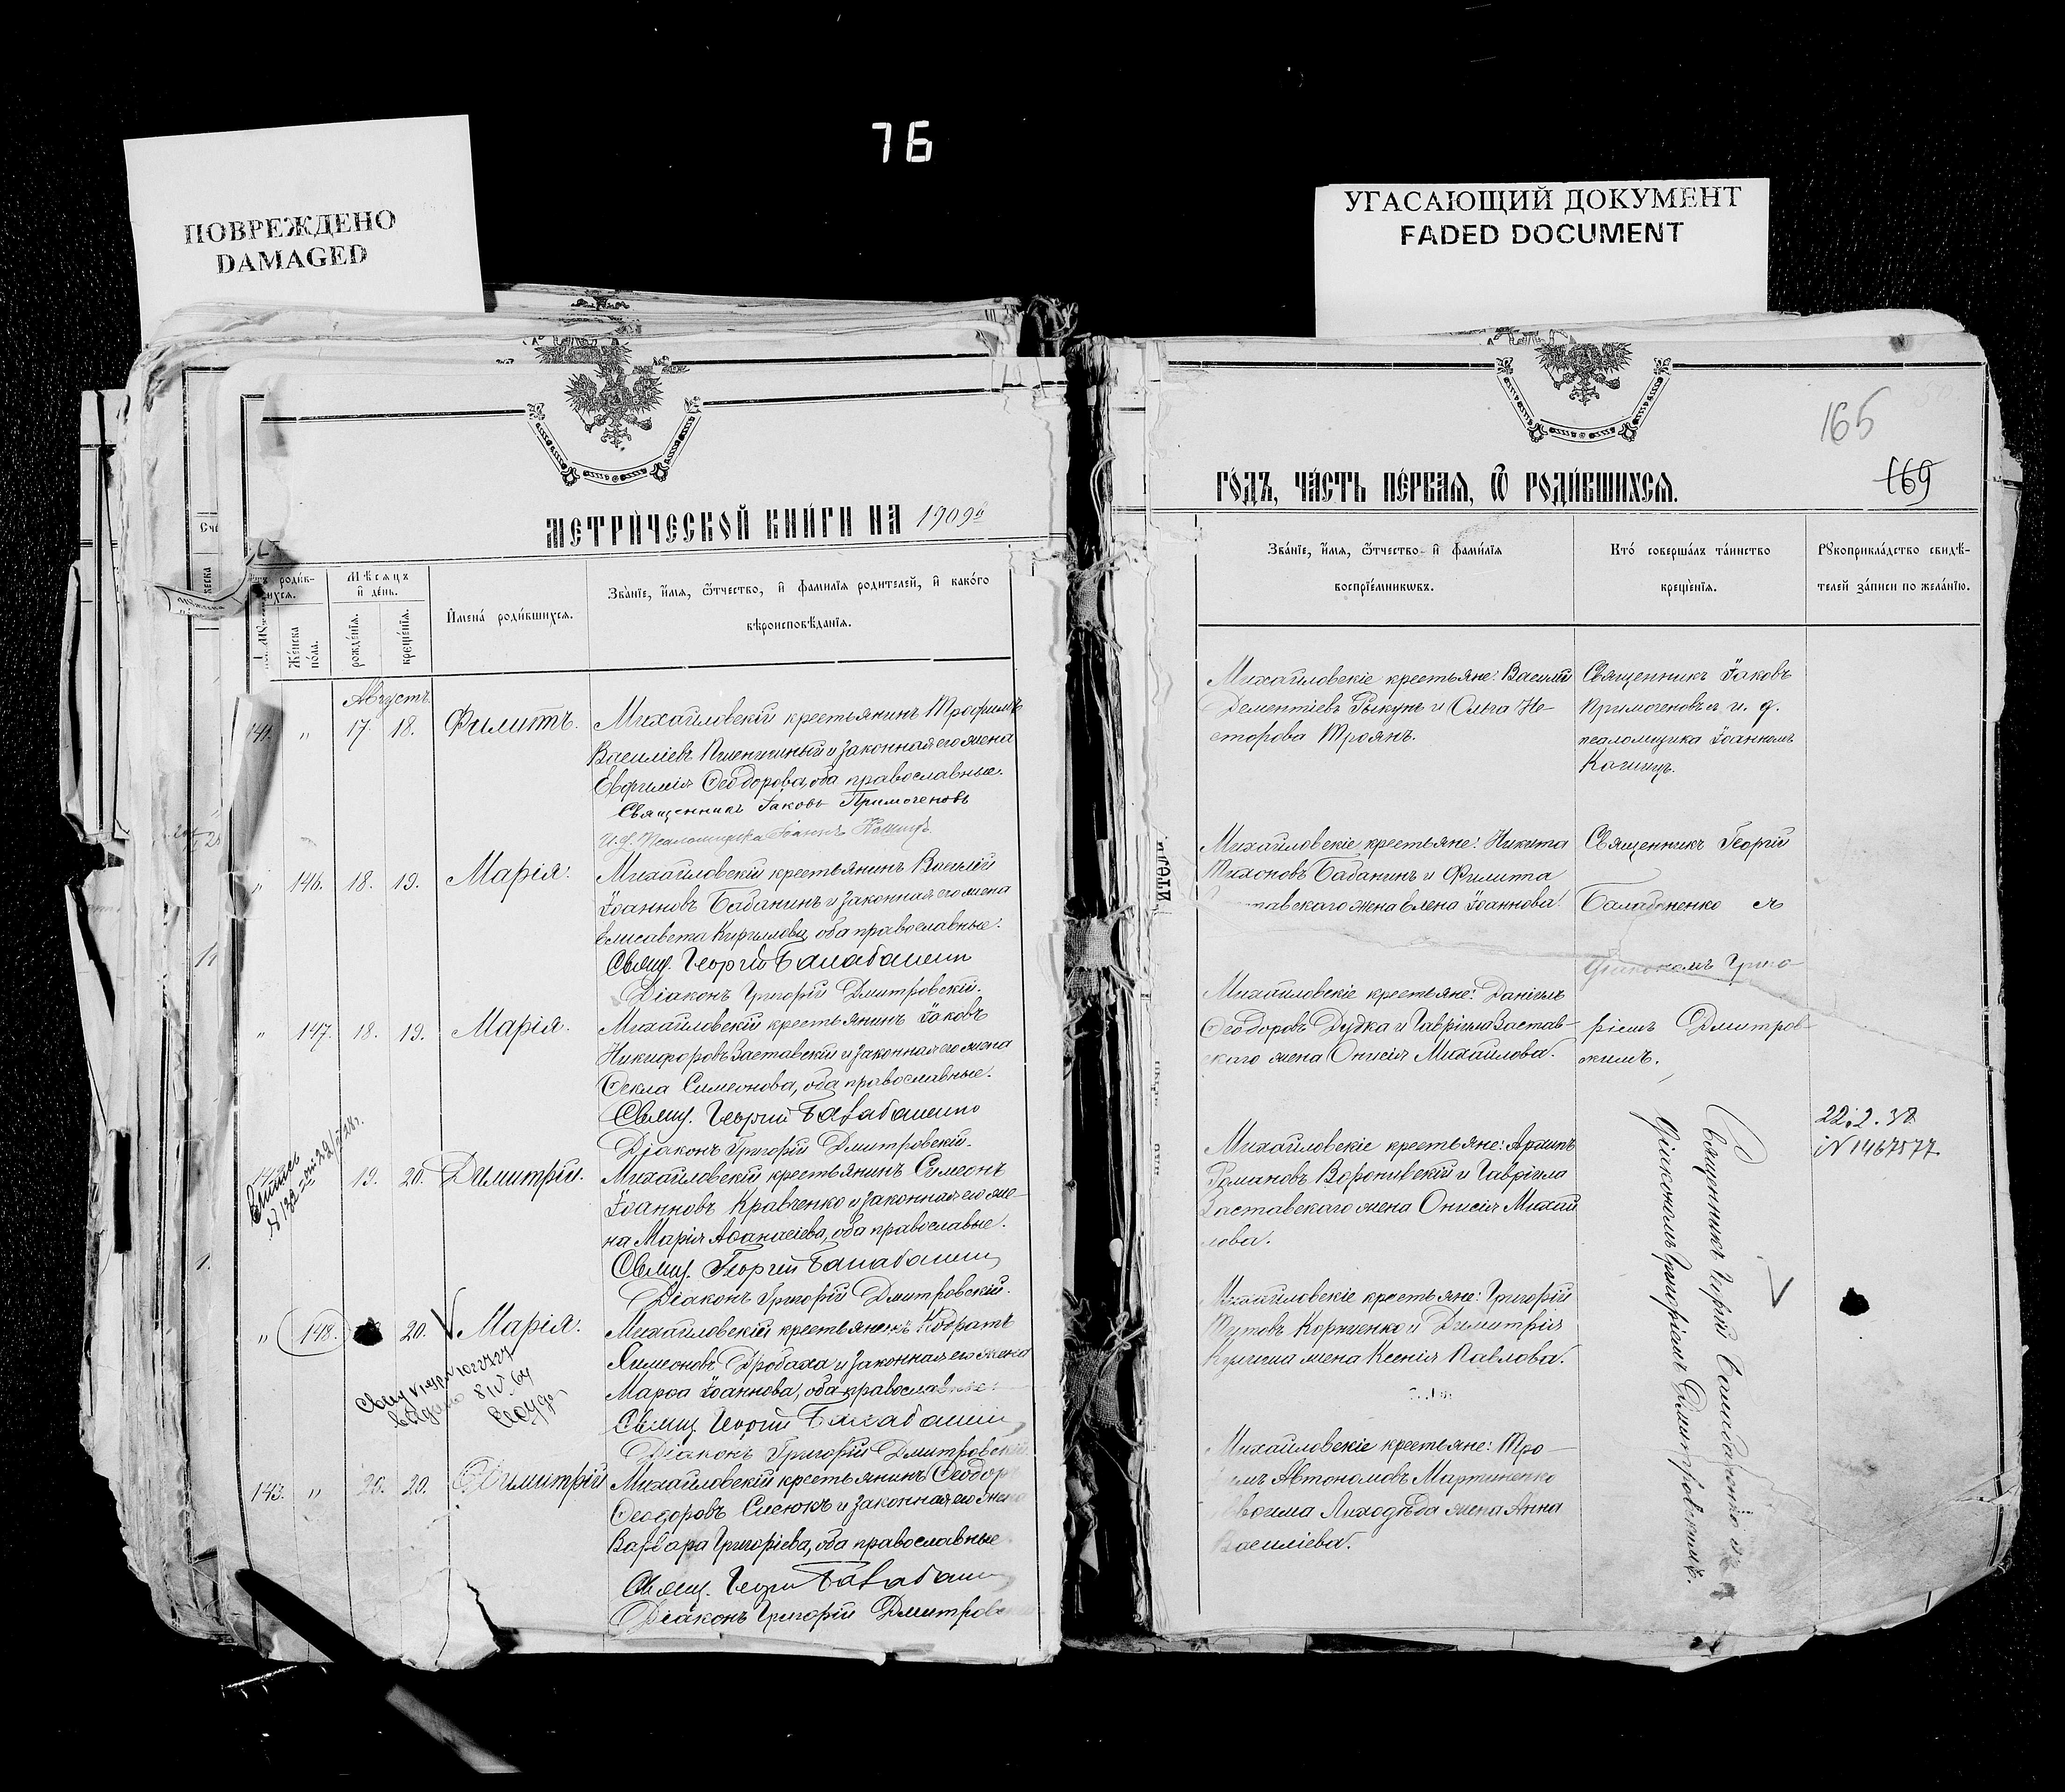 76
ПОВРЕЖДЕНО
DAMAGED
УГАСАЮЩИЙ ДОКУМЕНТ
FADED DOCUMENT
МЕТРИЧЕСКОЙ КНИГИ НА 1909й
Мѣсяцъ
и день.
Женска
пола.
рожденія.
крещенія.
Имена родившихся.
Званіе, имя, отчество, и фамилія родителей, и какого
вѣроисповѣданія.
Августъ.
141. " 17. 18. Филиппъ.
Михайловскій крестьянинъ Трофимъ
Василіевъ Пшеничный и законная его жена
Евфимія Ѳеодорова, оба православные.
Священникъ Іаковъ Примогеновъ
И. д. Псаломщика Іоаннъ
" 146. 18. 19. Марія.
Михайловскій крестьянинъ Василій
Іоанновъ Бабанинъ и законная его жена
Елисавета Кириллова, оба православные.
Свящ. Георгій Балабаненко
Діаконъ Григорій Дмитровскій.
" 147. 18. 19. Марія.
Михайловскій крестьянинъ Іаковъ
Никифоровъ Заставскій и законная его жена
Ѳекла Симеонова, оба православные.
Свящ. Георгій Балабаненко
Діаконъ Григорій Дмитровскій.
19. 20. Димитрій.
Михайловскій крестьянинъ Симеонъ
Іоанновъ Кравченко и законная его же-
на Марія Аѳанасіева, оба православные.
Свящ. Георгій Балабаненко
Діаконъ Григорій Дмитровскій.
" 148. 20. Марія.
Михайловскій крестьянинъ Кодратъ
Симеоновъ Дробаха и законная его жена
Марѳа Іоаннова, оба православные.
Свящ. Георгій Балабаненко
Діаконъ Григорій Дмитровскій
143. " 20. 20. Димитрій
Михайловскій крестьянинъ Ѳеодоръ
Ѳеодоровъ Слеюкъ и законная его жена
Варвара Григоріева, оба православные.
Свящ. Георгій Балабаненко
Діаконъ Григорій Дмитровскій
165
169
ГОДЪ, ЧАСТЬ ПЕРВАЯ, Ѿ РОДИВШИХСЯ.
Званіе, имя, отчество и фамилія
воспріемниковъ.
Кто совершалъ таинство
крещенія.
Рукоприкладство свидѣ-
телей записи по желанію.
Михайловскіе крестьяне: Василій
Дементіевъ Рыкунъ и Ольга Не-
сторова Троянъ.
Священникъ Іаковъ
Примогеновъ съ и. д.
псаломщика Іоанномъ
Михайловскіе крестьяне: Никита
Тихоновъ Бабанинъ и Филиппа
Заставскаго жена Елена Іоаннова.
Священникъ Георгій
Балабаненко съ
діакономъ Григо-
ріемъ Дмитров-
скимъ.
Михайловскіе крестьяне: Даніилъ
Ѳеодоровъ Дудка и Гавріила Застав-
скаго жена Онисія Михайлова.
Михайловскіе крестьяне: Архипъ
Романовъ Воронивскій и Гавріила
Заставскаго жена Онисія Михай
лова.
22.2.38
N 1467577
Михайловскіе крестьяне: Григорій
Титовъ Корниенко и Димитрія
жена Ксенія Павлова.
Михайловскіе крестьяне: Тро-
Автономовъ Мартиненко
Лиходѣда жена Анна
Василіева.
Священникъ Георгій Балабаненко съ
діакономъ Григоріемъ Дмитровскимъ.